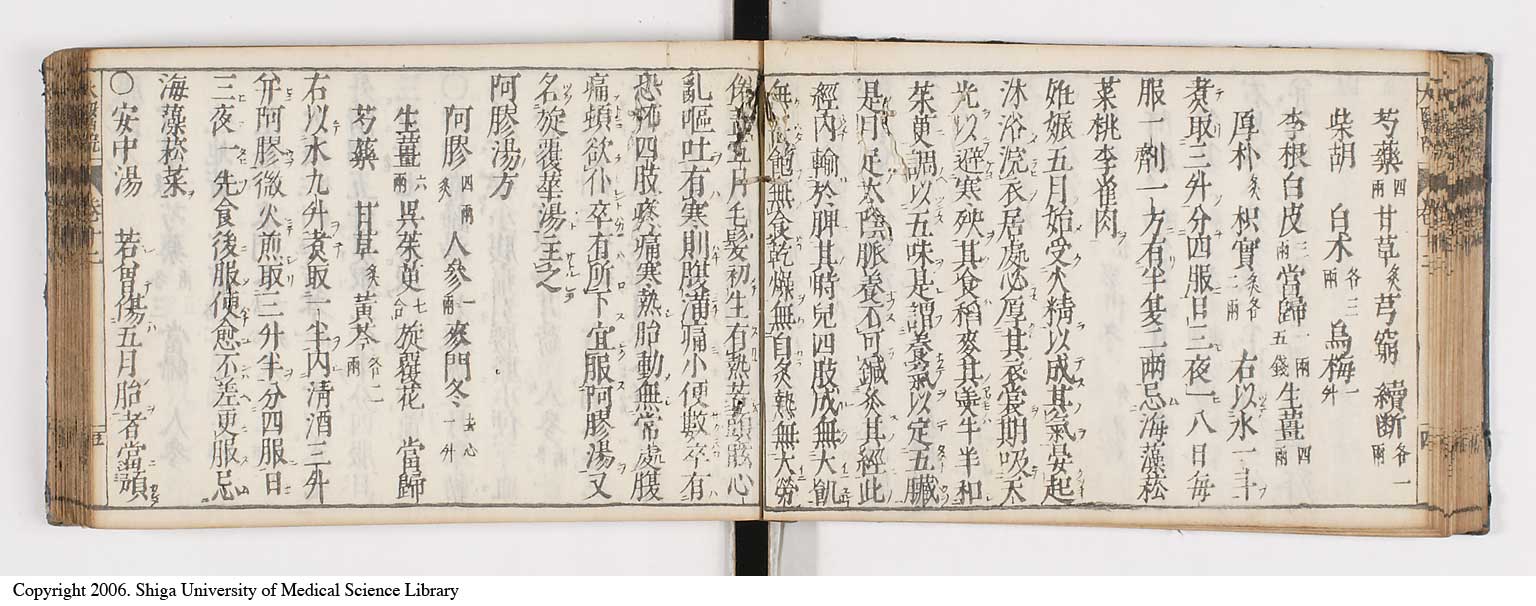 芍藥四兩甘草炙芎藭續断各一兩
柴胡白术各二兩烏梅一升
李根白皮三兩當歸一兩五錢生薑四兩
厚朴炙枳實各二兩右以水一斗
煑取三升分四服日三夜一八日每
服一劑一方有半夏二兩忌海藻菘
菜桃李雀肉
姙娠五月始受火精以成其氣晏起
沐浴浣衣居處必厚其衣裳期吸天
光以避寒殃其食稻麥其羮牛羊和
茱萸調以五味是謂養氣以定五臓
是月足太陰脈養不可鍼灸其經此
經內輸於脾其時兒四肢成無大飢
無飽無食乾燥無自炙熱無大勞
五月毛髮初生有熱苦頭眩心
亂嘔吐有寒則腹滿痛小便數卒有
恐怖四肢疼痛寒熱胎動無常處腹
痛頓欲仆卒有所下宜服阿膠湯又
名旋覆華湯主之
阿膠湯方
阿膠四兩炙人參一兩麥門冬去心一升
生薑六兩呉茱萸七合旋覆花當歸
芍藥甘草炙黃芩各二兩
右以水九升煑取一半內清酒三升
并阿膠微火煎取三升半分四服日
三夜一先食後服便愈不差更服忌
海藻菘菜
○安中湯若曽傷五月胎者當預
Copyright 2006. Shiga University of Medical Science Library